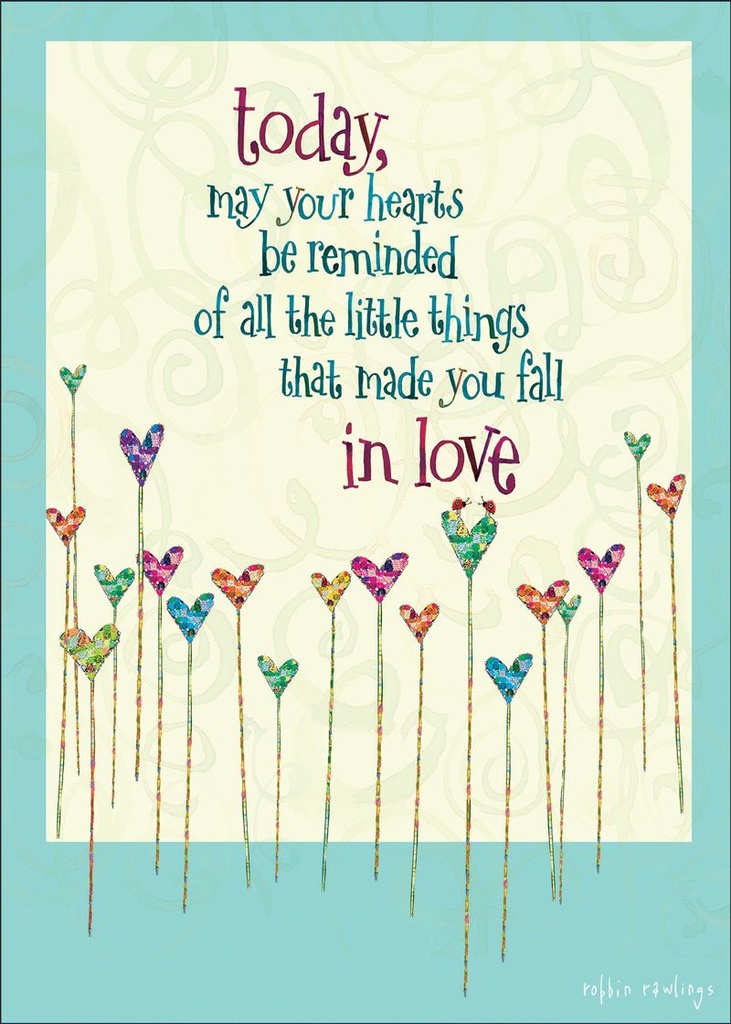 today,
may your hearts
be reminded
of all the little things
that made you fall
in love
robbin rawlings